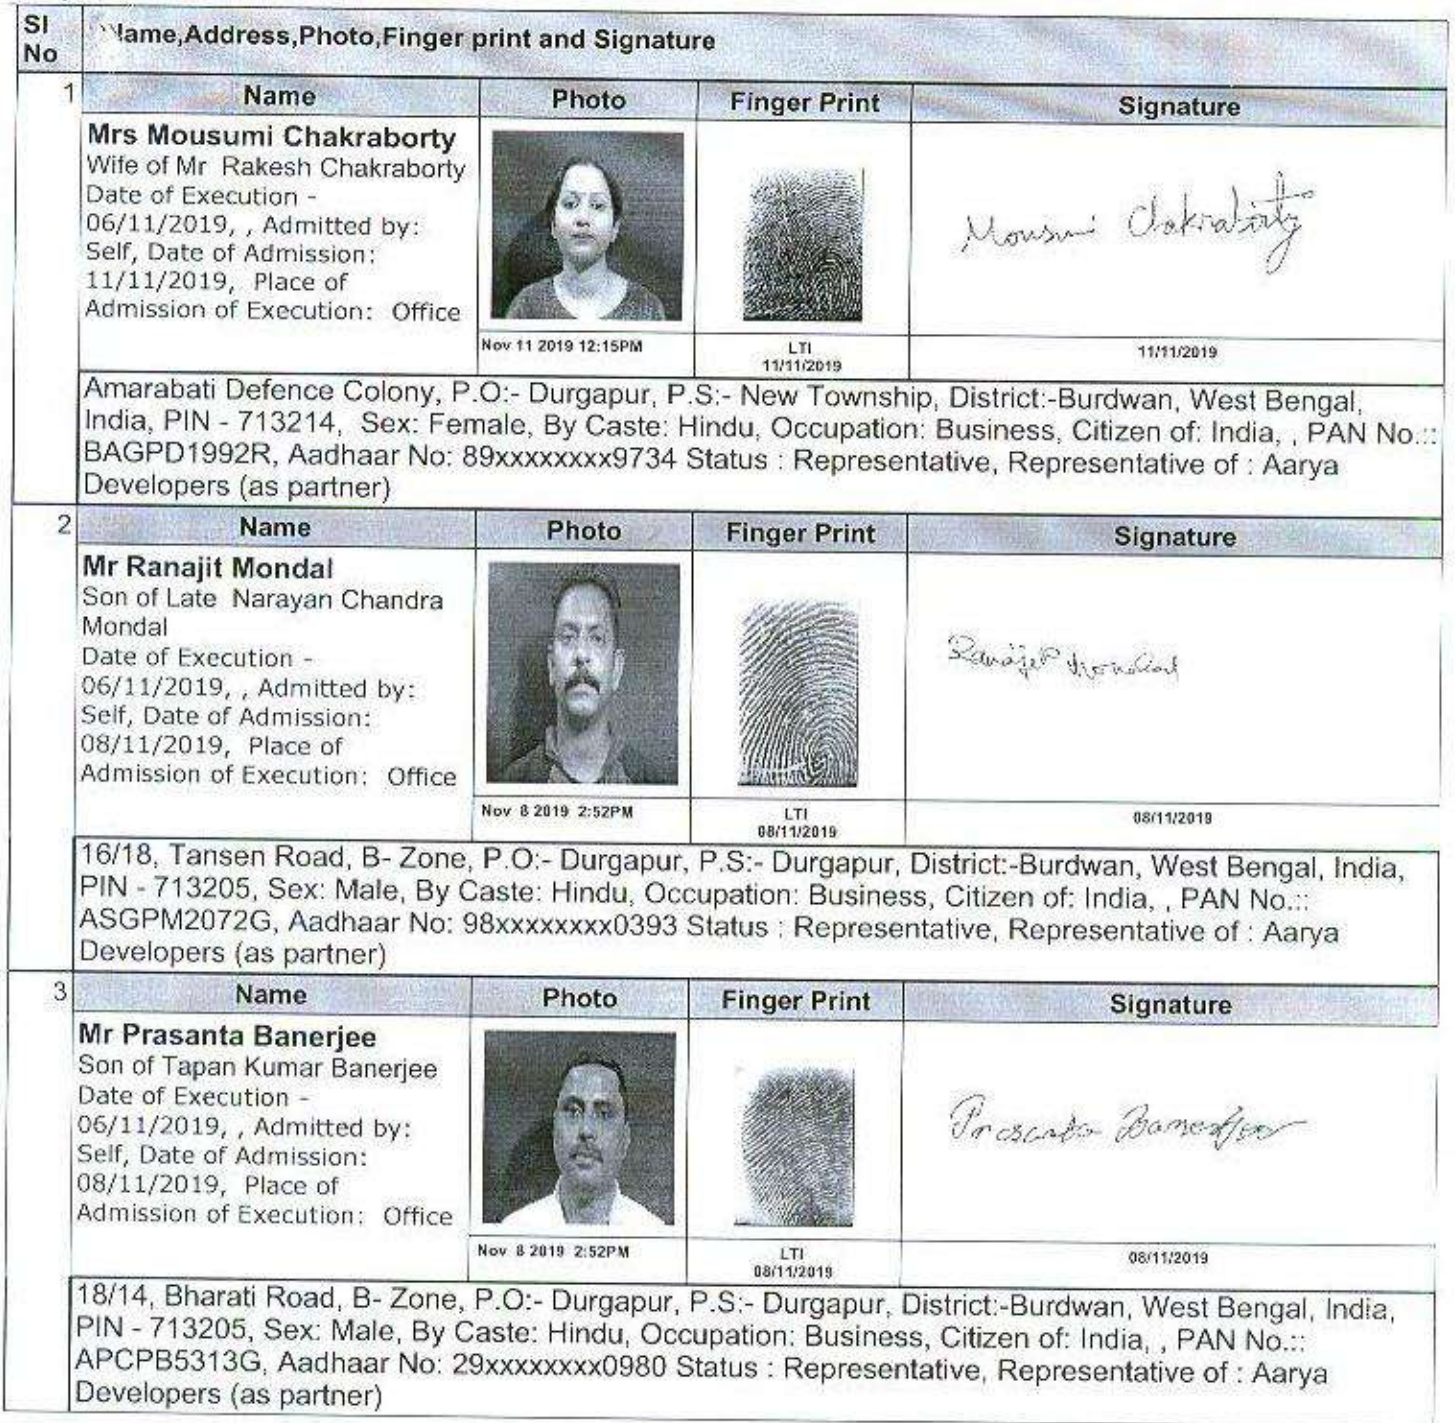 Sl No
Name,Address,Photo,Finger print and Signature
1
Name Photo Finger Print Signature
Mrs Mousumi Chakraborty
Wife of Mr Rakesh Chakraborty
Date of Execution -
06/11/2019, , Admitted by:
Self, Date of Admission:
11/11/2019, Place of
Admission of Execution: Office
Mousumi Chakraborty
Nov 11 2019 12:15PM
LTI
11/11/2019
11/11/2019
Amarabati Defence Colony, P.O:- Durgapur, P.S:- New Township, District:-Burdwan, West Bengal,
India, PIN - 713214, Sex: Female, By Caste: Hindu, Occupation: Business, Citizen of: India, , PAN No.::
BAGPD1992R, Aadhaar No: 89xxxxxxxx9734 Status : Representative, Representative of : Aarya
Developers (as partner)
2
Name Photo Finger Print Signature
Mr Ranajit Mondal
Son of Late Narayan Chandra
Mondal
Date of Execution -
06/11/2019, , Admitted by:
Self, Date of Admission:
08/11/2019, Place of
Admission of Execution: Office
Ranajit Mondal
Nov 8 2019 2:52PM
LTI
08/11/2019
08/11/2019
16/18, Tansen Road, B- Zone, P.O:- Durgapur, P.S:- Durgapur, District:-Burdwan, West Bengal, India,
PIN - 713205, Sex: Male, By Caste: Hindu, Occupation: Business, Citizen of: India, , PAN No.::
ASGPM2072G, Aadhaar No: 98xxxxxxxx0393 Status : Representative, Representative of : Aarya
Developers (as partner)
3
Name Photo Finger Print Signature
Mr Prasanta Banerjee
Son of Tapan Kumar Banerjee
Date of Execution -
06/11/2019, , Admitted by:
Self, Date of Admission:
08/11/2019, Place of
Admission of Execution: Office
Prasanta Banerjee
Nov 8 2019 2:52PM
LTI
08/11/2019
08/11/2019
18/14, Bharati Road, B- Zone, P.O:- Durgapur, P.S:- Durgapur, District:-Burdwan, West Bengal, India,
PIN - 713205, Sex: Male, By Caste: Hindu, Occupation: Business, Citizen of: India, , PAN No.::
APCPB5313G, Aadhaar No: 29xxxxxxxx0980 Status : Representative, Representative of : Aarya
Developers (as partner)